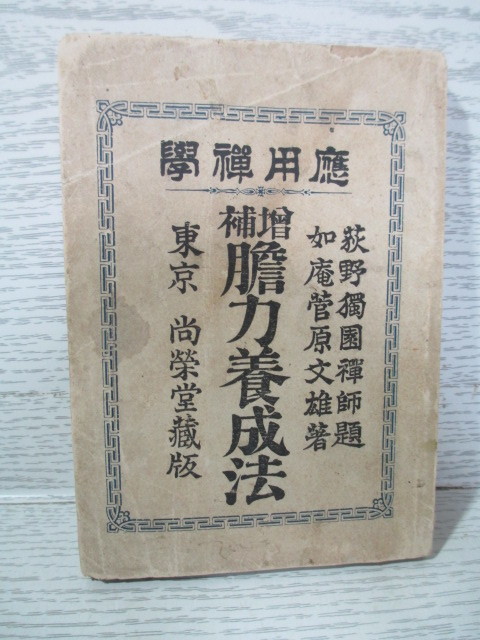 應用禪學
荻野獨園禪師題
如庵菅原文雄著
增補
膽力養成法
東京 尚榮堂藏版